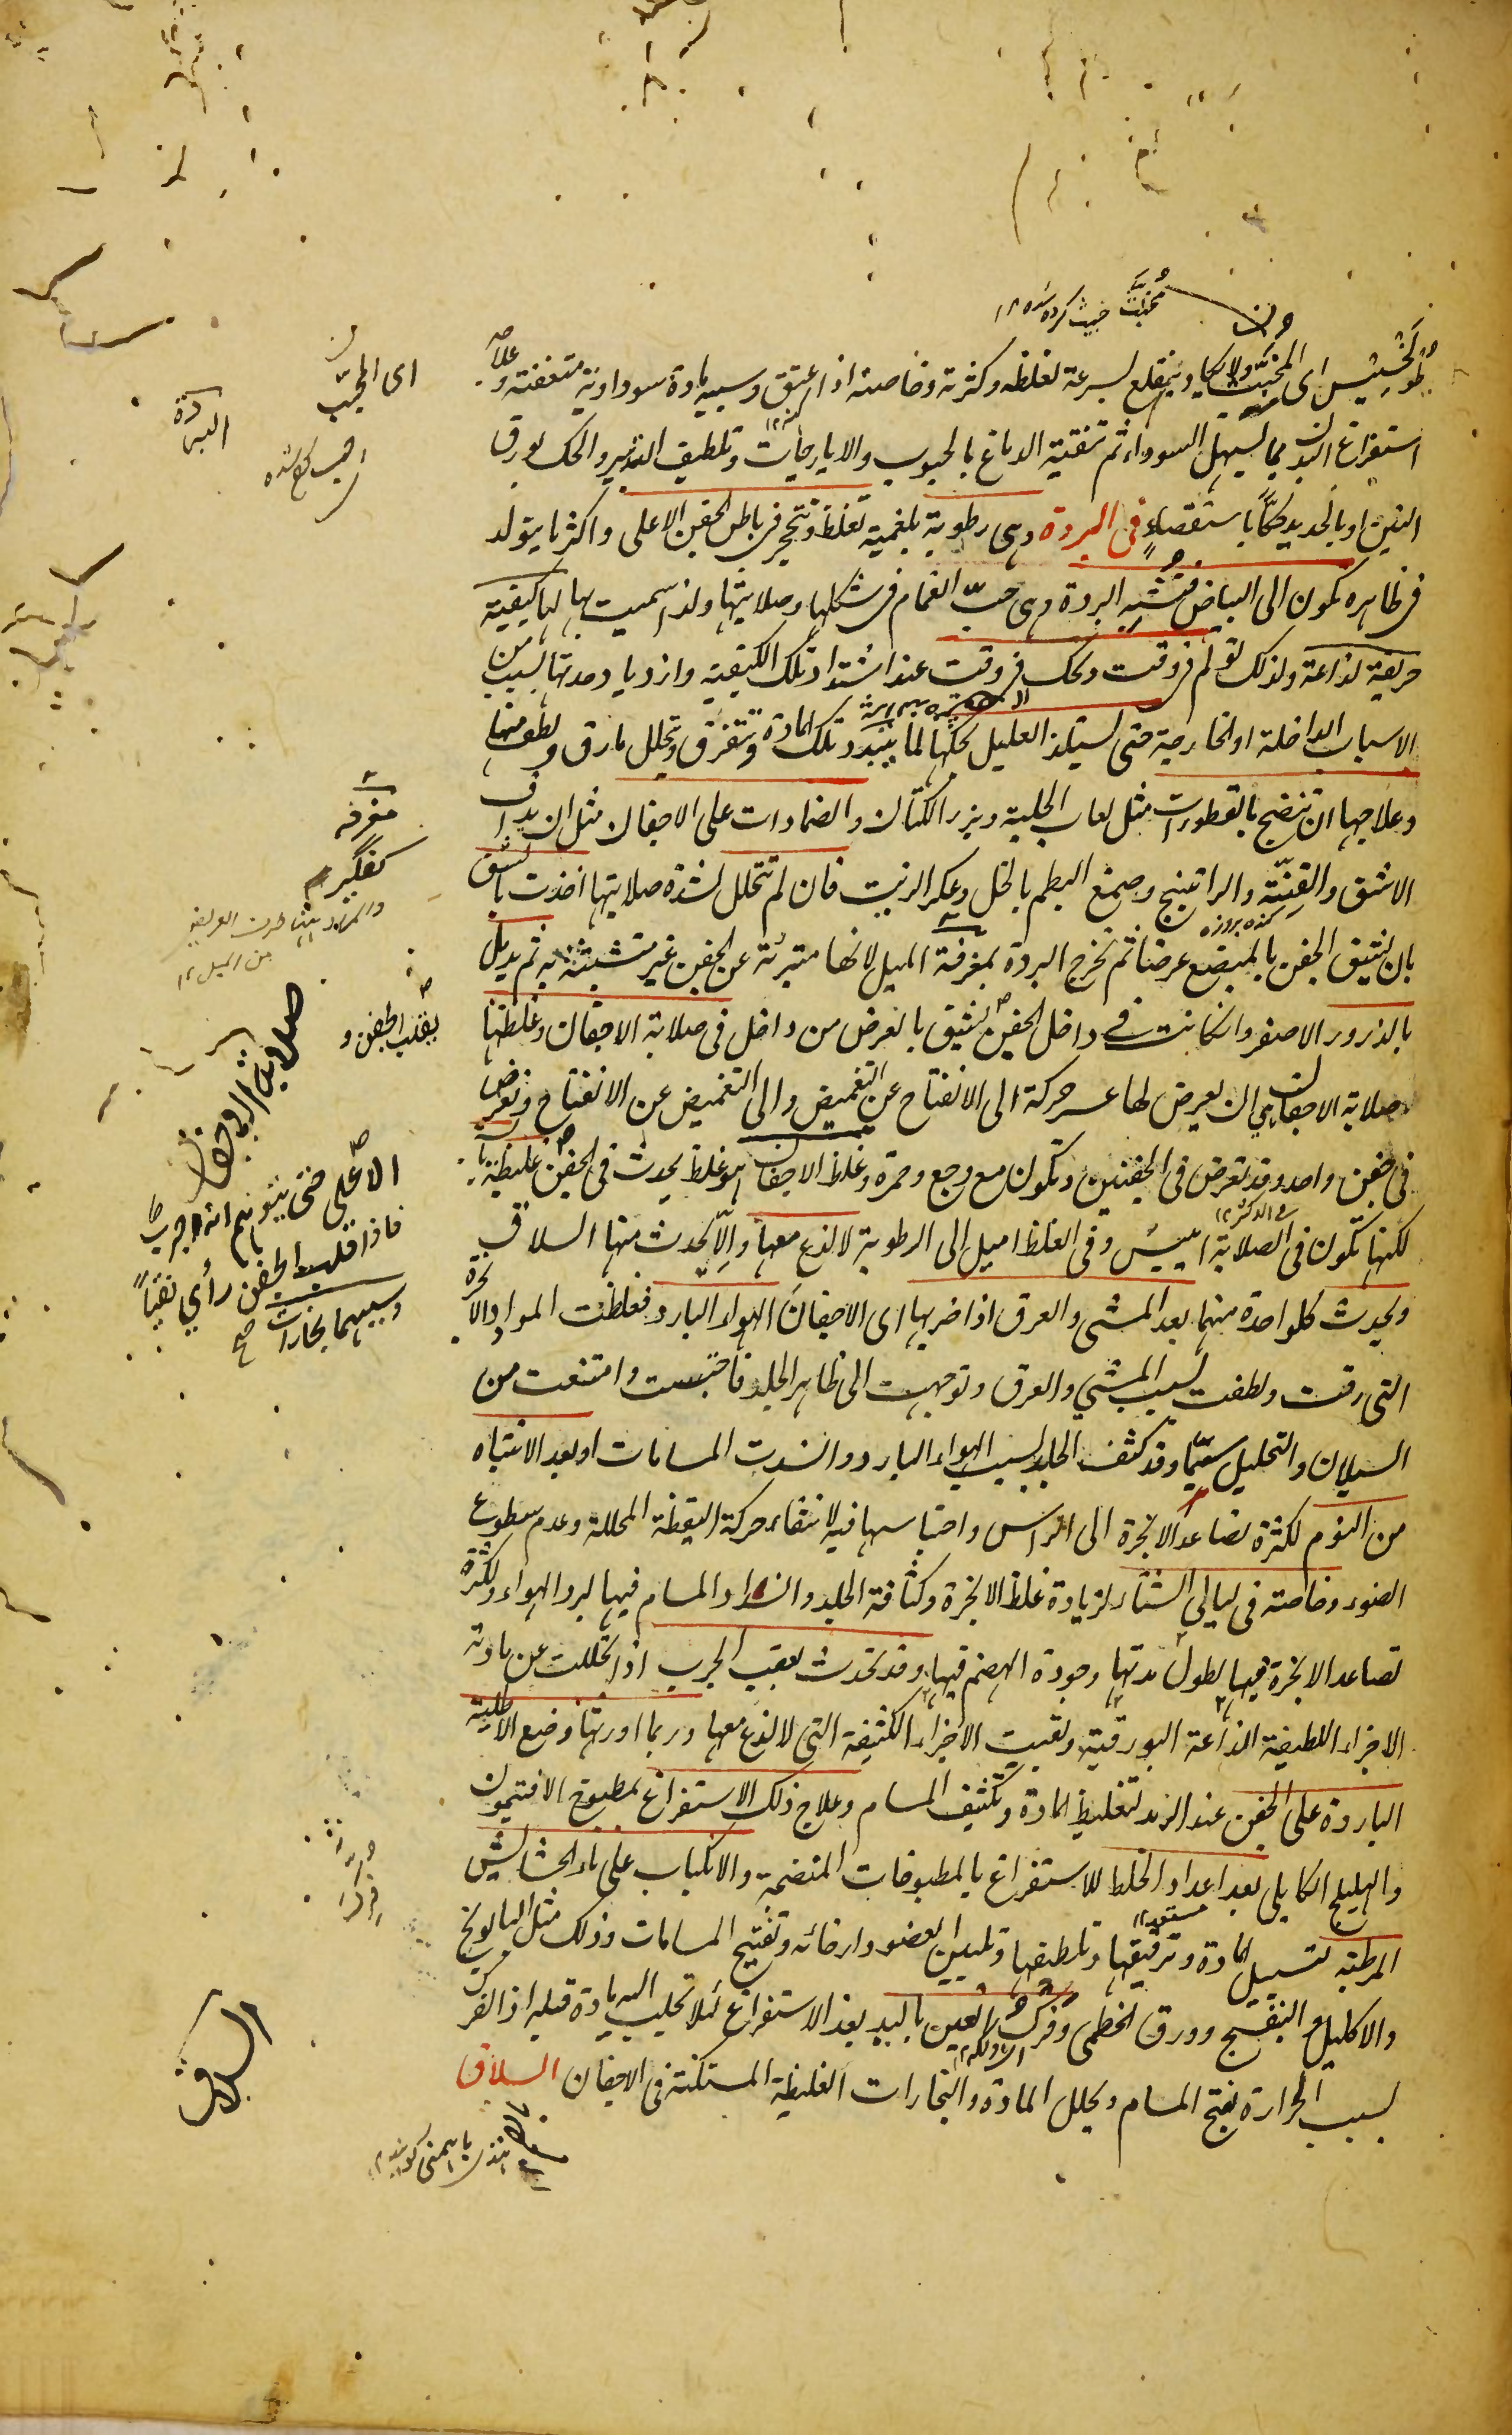 مُخبَّث خبیث کرده شده ۱۲
طوخسیس ای المخبث ولا یکاد ینقلع بسرعة لغلظه وکثرته وخاصة اذا عتق وسببه مادة سوداویة متعفنة وعلاجه
استفراغ البدن بما یسهل السوداء ثم تنقیة الدماغ بالحبوب والایارجات وتلطیف التدبیر والحک بورق
التین او بالحدید حکّاً باستقصاءٍ فی البردة وهی رطوبة بلغمیة تغلظ وتتحجر فی باطن الجفن الاعلی واکثر ما یتولد
فی ظاهره تکون الی البیاض تشبه البردة وهی حبّ الغمام فی شکلها وصلابتها ولذا سمیت بها لها کیفیة
حریفة لذاعة ولذلک تولم فی وقت وتحک فی وقت عند اشتداد تلک الکیفیة وازدیاد حدتها بسبب من
الاسباب الداخلة او الخارجیة حتی یستلذ العلیل بحکها لما یتبدد تلک المادة وتتفرق ویتحلل ما رق ولطف منها
وعلاجها ان تنضج بالقطورات مثل لعاب الحلبة وبزر الکتان والضمادات علی الاجفان مثل ان یداف
الاشق والقنّة والراتینج وصمغ البطم بالخل وعکر الزیت فان لم تتحلل لشدة صلابتها اخذت بالشق
بان یشق الجفن بالمبضع عرضا ثم تخرج البردة بمغرفة المیل لانها متبرئة عن الجفن غیر متشبثة به ثم یدمل
بالذرور الاصفر وان کانت فی داخل الجفن یشق بالعرض من داخل فی صلابة الاجفان وغلظها
صلابة الاجفان هی ان یعرض لها عسر حرکة الی الانفتاح عن التغمیض والی التغمیض عن الانفتاح وتعرض
فی جفن واحد وقد تعرض فی الجفنین وتکون مع وجع وحمرة وغلظ الاجفان هو غلظ یحدث فی الجفن غلیظة
لکنها تکون فی الصلابة ایبس وفی الغلظ امیل الی الرطوبة لا لذع معها والّا یحدث منها السلاق
ویحدث کلواحدة منهما بعد المشی والعرق اذا ضربها ای الاجفان الهواء البارد فغلظت المواد والابخرة
التی رقت ولطفت بسبب المشی والعرق وتوجهت الی ظاهر الجلد فاحتبست وامتنعت من
السیلان والتحلیل سیّما وقد کثف الجلد بسبب الهواء البارد وانسدت المسامات او بعد الانتباه
من النوم لکثرة تصاعد الابخرة الی الراس واحتباسها فیه لانتفاء حرکة الیقظة المحللة وعدم سطوع
الضوء وخاصة فی لیالی الشتاء لزیادة غلظ الابخرة وکثافة الجلد وانسداد المسام فیها لبرد الهواء ولکثرة
تصاعد الابخرة فیها لطول مدتها وجودة الهضم فیها وقد تحدث بعقب الجرب اذا تحللت عن مادته
الاجزاء اللطیفة الذاعة البورقیة وبقیت الاجزاء الکثیفة التی لا لذع معها وربما اورثها وضع الاطلیة
الباردة علی الجفن عند الرمد لتغلیظ المادة وتکثیف المسام وعلاج ذلک الاستفراغ بمطبوخ الافتیمون
والهلیلج الکابلی بعد اعداد الخلط للاستفراغ بالمطبوخات المنضجة والانکباب علی ماء الحشائش
المرطبة لتسییل المادة وترقیقها وتلطیفها وتلیین العضو وارخائه وتفتیح المسامات وذلک مثل البابونج
والاکلیل والبنفسج وورق الخطمی وفرک العین بالید بعد الاستفراغ لئلا تجلب الیه مادة قبله اذ الفرک
بسبب الحرارة یفتح المسام ویحلل المادة والبخارات الغلیظة المستکنة فی الاجفان السلاق
ای المجرب
البردة
مغرفه
کفگیر
والمراد بهنا طرف العریض
من المیل ۱۲
یقلب الجفن و
صلابة الاجفان
الاعلی حتی یتوهم انه جرب
فاذا قلبت الجفن رأی نقیاً
وسببهما بخارات
السلاق